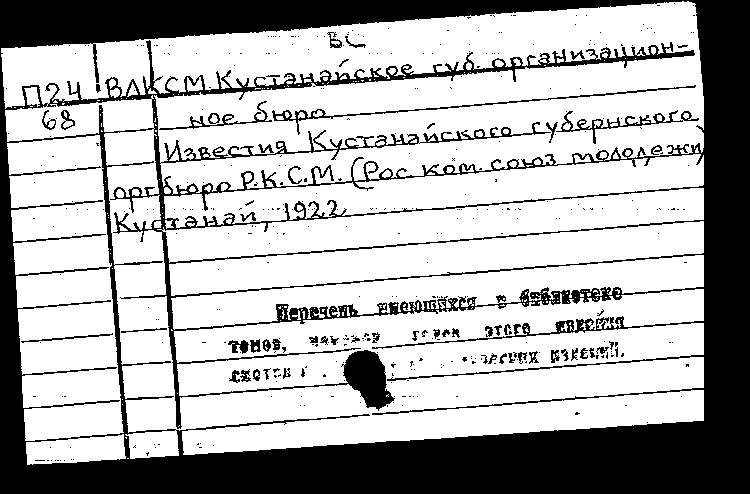 ВС
П24 ВЛКСМ Кустанайское губ. организацион-
68 ное бюро
Известия Кустанайского губернского
оргбюро Р.К.С.М. (Рос ком. союз молодежи)
Кустанай, 1922
Перечень имеющихся в библиотеке
томов, этого издания
изданий.